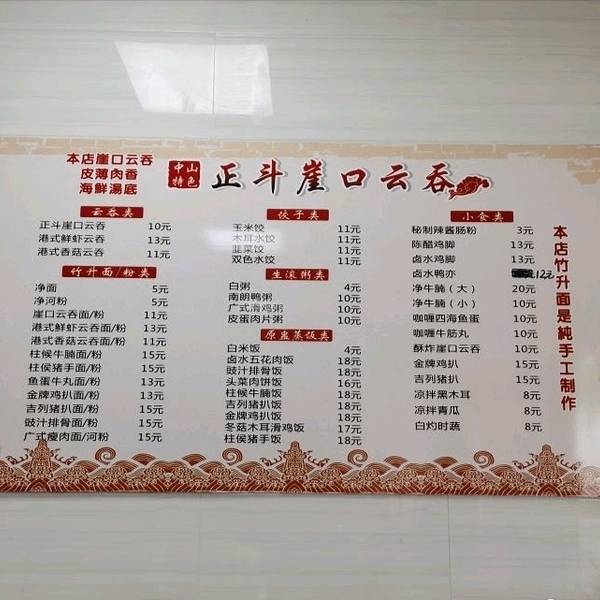 本店崖口云吞
皮薄肉香
海鲜湯底
中山
特色
正斗崖口云吞
云吞类
正斗崖口云吞 10元
港式鲜虾云吞 13元
港式香菇云吞 11元
竹升面/粉类
净面 5元
净河粉 5元
崖口云吞面/粉 11元
港式鲜虾云吞面/粉 13元
港式香菇云吞面/粉 11元
柱候牛腩面/粉 15元
柱侯猪手面/粉 15元
鱼蛋牛丸面/粉 13元
金牌鸡扒面/粉 15元
吉列猪扒面/粉 15元
豉汁排骨面/粉 15元
广式瘦肉面/河粉 15元
饺子类
玉米饺 11元
木耳水饺 11元
韭菜饺 11元
双色水饺 11元
生滚粥类
白粥 4元
南朗鸭粥 10元
广式滑鸡粥 10元
皮蛋肉片粥 10元
原盅蒸饭类
白米饭 4元
卤水五花肉饭 18元
豉汁排骨饭 18元
头菜肉饼饭 16元
柱候牛腩饭 18元
吉列猪扒饭 18元
金牌鸡扒饭 18元
冬菇木耳滑鸡饭 17元
柱侯猪手饭 18元
小食类
秘制辣酱肠粉 3元
陈醋鸡脚 13元
卤水鸡脚 13元
卤水鸭亦 12元
净牛腩（大） 20元
净牛腩（小） 10元
咖喱四海鱼蛋 10元
咖喱牛筋丸 10元
酥炸崖口云吞 10元
金牌鸡扒 15元
吉列猪扒 15元
凉拌黑木耳 8元
凉拌青瓜 8元
白灼时蔬 8元
本店竹升面是純手工制作